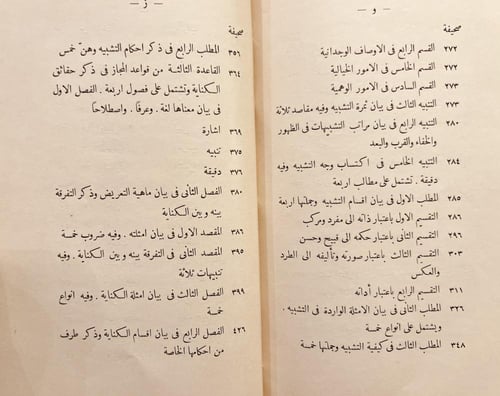 — و —
صحيفة
٢٧٢ القسم الرابع فى الاوصاف الوجدانية
٢٧٢ القسم الخامس فى الامور الخيالية
٢٧٣ القسم السادس فى الامور الوهمية
٢٧٣ التنبيه الثالث فى بيان ثمرة التشبيه وفيه مقاصد ثلاثة
٢٨٠ التنبيه الرابع فى بيان مراتب التشبيهات فى الظهور
والخفاء والقرب والبعد
٢٨٤ التنبيه الخامس فى اكتساب وجه التشبيه وفيه
دقيقة . تشتمل على مطالب اربعة
٢٨٥ المطلب الاول فى بيان اقسام التشبيه وجملتها اربعة
٢٨٦ التقسيم الاول باعتبار ذاته الى مفرد ومركب
٢٩٦ التقسيم الثانى باعتبار حكمه الى قبيح وحسن
٣٠٣ التقسيم الثالث باعتبار صورته وتأليفه الى الطرد
والعكس
٣١١ التقسيم الرابع باعتبار أداته
٣٢٦ المطلب الثانى فى بيان الامثلة الواردة فى التشبيه .
ويشتمل على انواع خمسة
٣٤٨ المطلب الثالث فى كيفية التشبيه وجملتها خمسة
— ز —
صحيفة
٣٥٦ المطلب الرابع فى ذكر احكام التشبيه وهنّ خمس
٣٦٤ القاعدة الثالثة من قواعد المجاز فى ذكر حقائق
الكناية وتشتمل على فصول اربعة . الفصل الاول
فى بيان معناها لغة . وعرفاً . واصطلاحاً
٣٦٩ اشارة
٣٧٥ تنبيه
٣٧٦ دقيقة
٣٨٠ الفصل الثانى فى بيان ماهية التعريض وذكر التفرقة
بينه وبين الكناية
٣٨٦ المقصد الاول فى بيان امثلته . وفيه ضروب خمسة
٣٩٥ المقصد الثانى فى التفرقة بينه وبين الكناية . وفيه
تنبيهات ثلاثة
٣٩٩ الفصل الثالث فى بيان امثلة الكناية . وفيه انواع
خمسة
٤٢٦ الفصل الرابع فى بيان اقسام الكناية وذكر طرف
من احكامها الخاصة